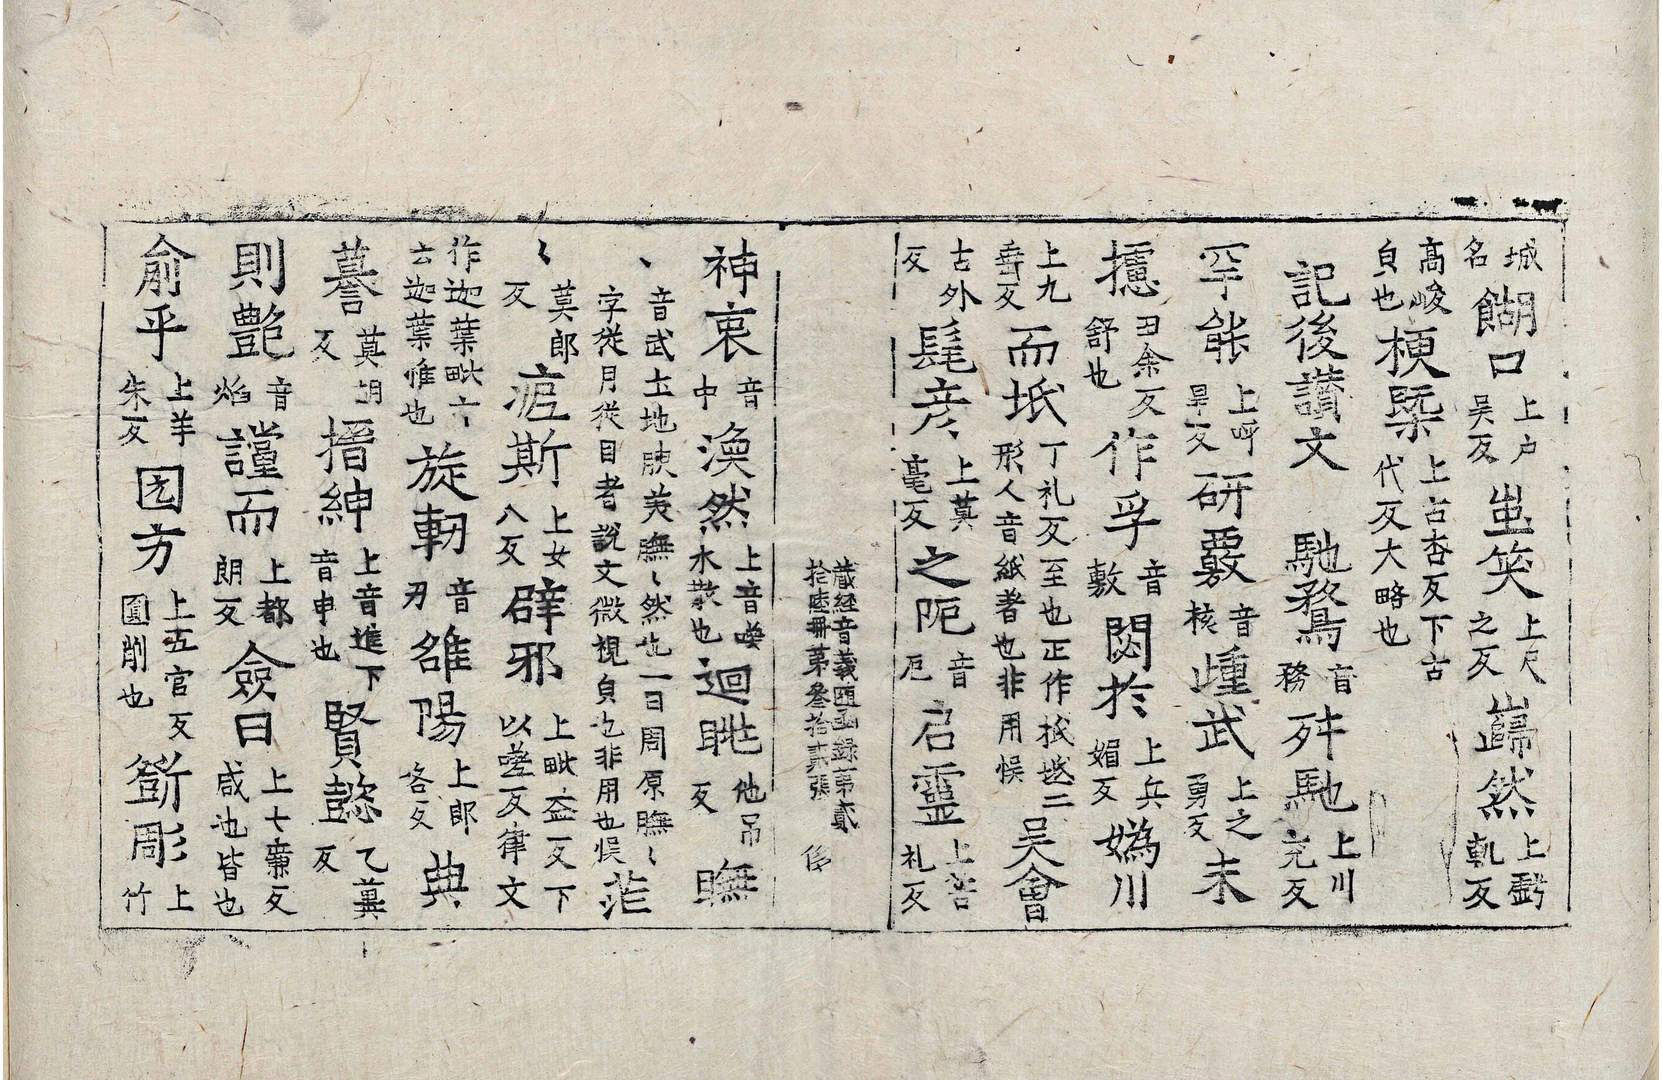 城名餬口上户吴反蚩笑上尺之反巋然上虧軌反
高峻皃也梗槩上古杏反下古代反大略也
記後讃文馳騖音務舛馳上川兖反
罕能上呼旱反研覈音核歱武上之勇反未
攄丑余反舒也作孚音敷閟於上兵媚反嬀川
上九垂反而坻丁礼反至也正作抵坻二形人音紙著也非用悮吴會
古外反髦彦上莫毫反之阨音厄启靈上苦礼反
藏經音義随函録第貳拾陸冊第叁拾貳張
神衷音中渙然上音喚水散也迴眺他吊反瞴
音武土地腜美瞴〻然也一曰周原瞴〻字從月從目者說文微視皃也非用也悮茫
〻莫郎反疪斯上女八反辟邪上毗益反下以嗟反律文
作迦葉毗六云迦葉惟也旋軔音刃雒陽上郎各反典
謩莫胡反搢紳上音進下音申也賢懿乙冀反
則艶音焰讜而上都朗反僉曰上七廉反咸也皆也
俞乎上羊朱反园方上五官反圓削也斵彫上竹